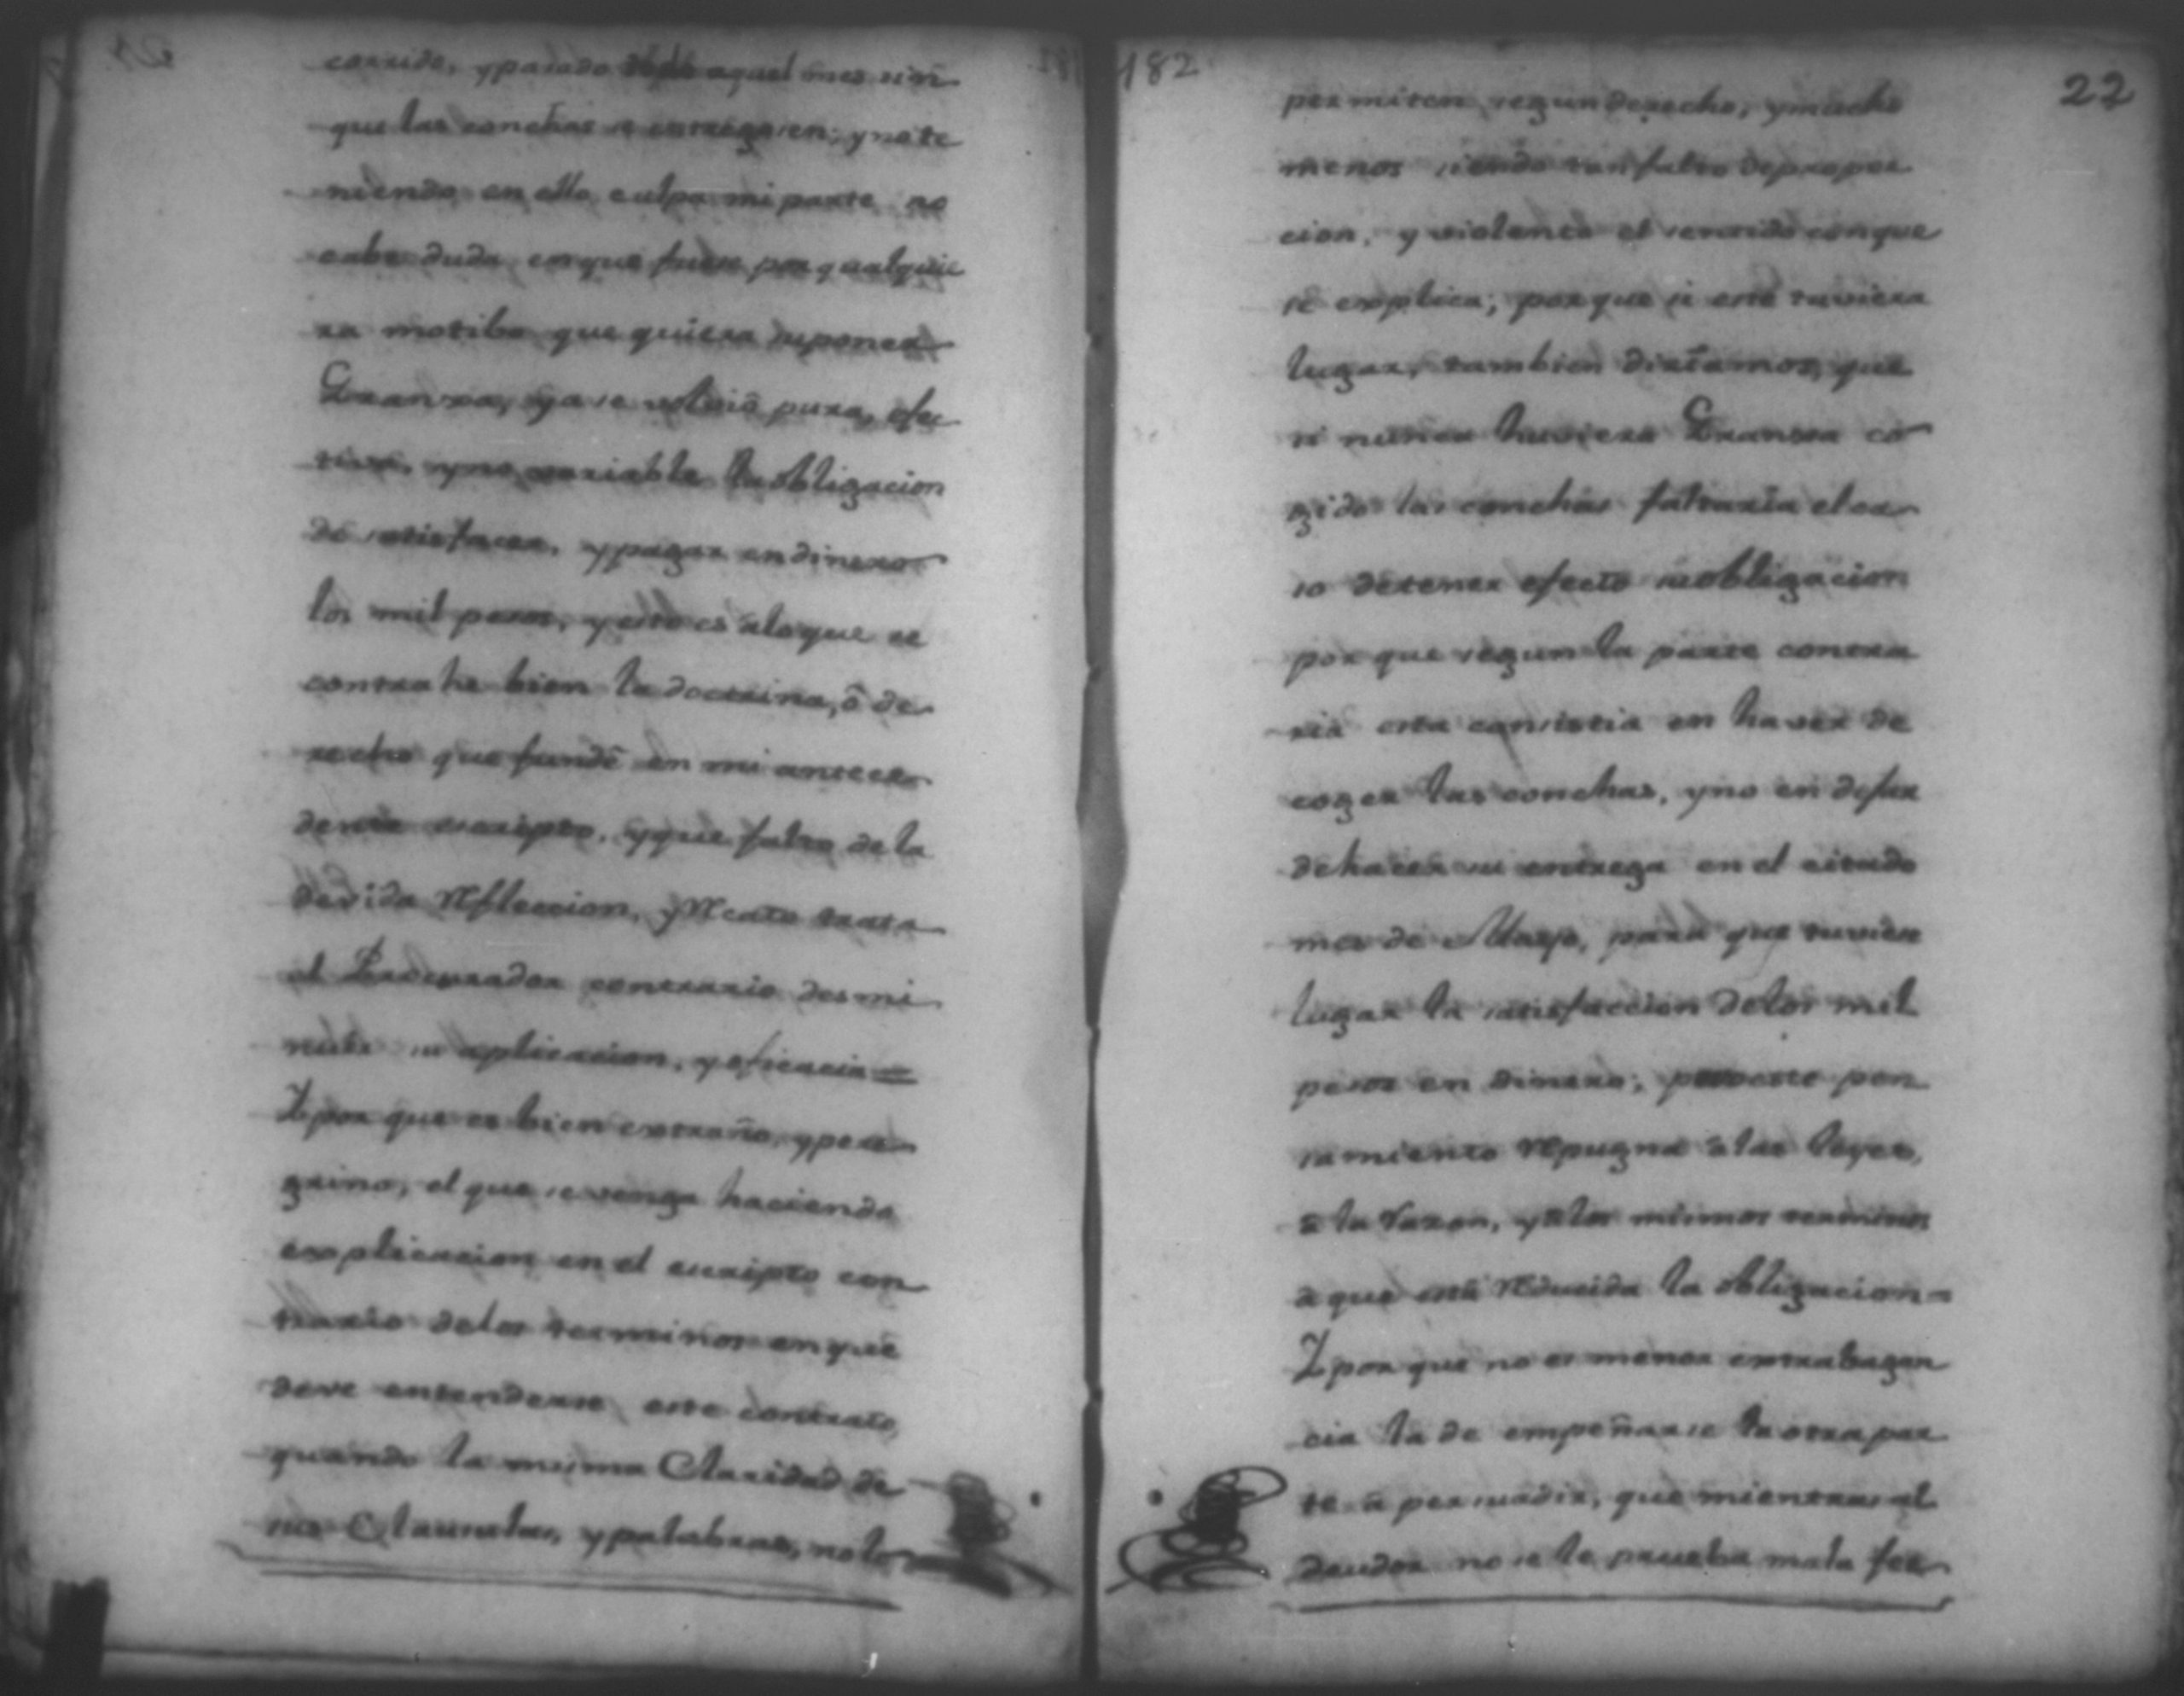 corrido, y pasado todo aquel mes sin
que las conchas se entregasen; y no te
niendo en ello culpa mi parte no
cabe duda en que fuese por qualquie
ra motibo que quiera suponer
Granxa, ya se volvió pura, efec
tiva, y no variable la obligacion
de satisfacer, y pagar en dinero
los mil pesos, y esto es a lo que se
contrahe bien la doctrina, ô de
recho que fundé en mi antece
dente escripto, y que falto de la
devida refleccion, y recato trata
el Procurador contrario desmi
nuir su aplicacion, y eficacia =
Y por que es bien extraño, y pere
grino, el que se venga haciendo
explicacion en el escripto con
trario de los terminos en que
deve entenderse este contrato,
quando la misma Claridad de
sus Clausulas, y palabras, no lo
182
22
permiten segun derecho, y mucho
menos siendo tan falto de propor
cion, y violento el sentido con que
se explica; porque si este tuviera
lugar, tambien diríamos, que
si nunca huviera Granxa co
gido las conchas faltaría el ca
so de tener efecto su obligacion
por que segun la parte contra
ria esta consistia en haver de
coger las conchas, y no en dejar
de hacer su entrega en el citado
mes de Mayo, para que tuviese
lugar la satisfaccion de los mil
pesos en dinero; pero este pen
samiento repugna â las leyes,
â la razon, y â los mismos terminos
â que está reducida la obligacion =
Y por que no es menor extrabagan
cia la de empeñarse la otra par
te â persuadir, que mientras al
deudor no se le prueba mala fee